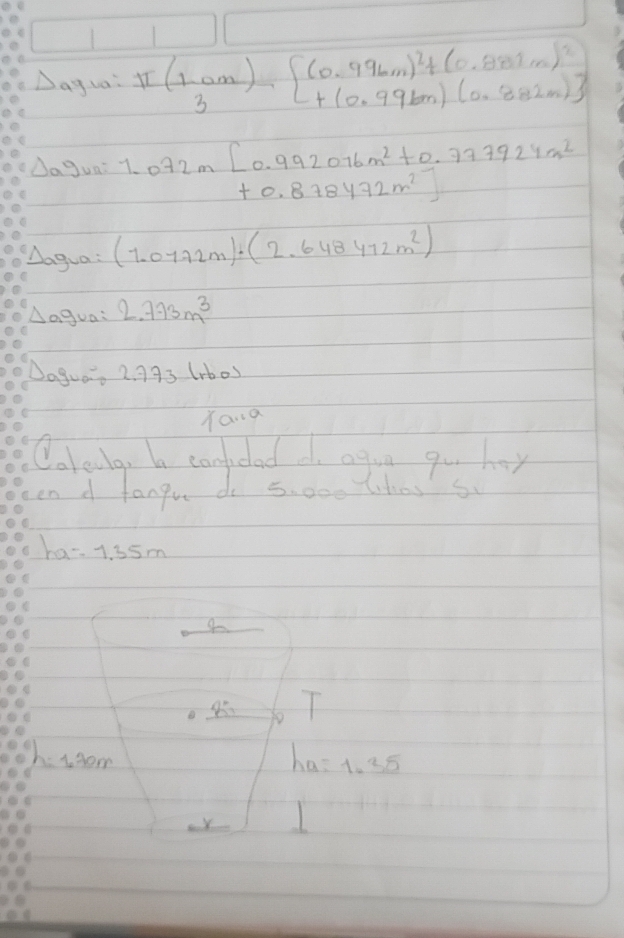 Δagua: π (1.0m) . [(0.996m)²+(0.882m)²
3 +(0.996m) (0.882m)]
Δagua: 1.072m [0.992016m²+0.777924m²
+ 0.878472m²]
Δagua: (1.0472m)·(2.648412m²)
Δagua: 2.773m³
Δagua: 2.773 litros
Tarea
Calcular la cantidad de agua que hay
en el tanque de 5.000 litros si
ha= 1.35m
h: 1.70m
ha= 1.35
r